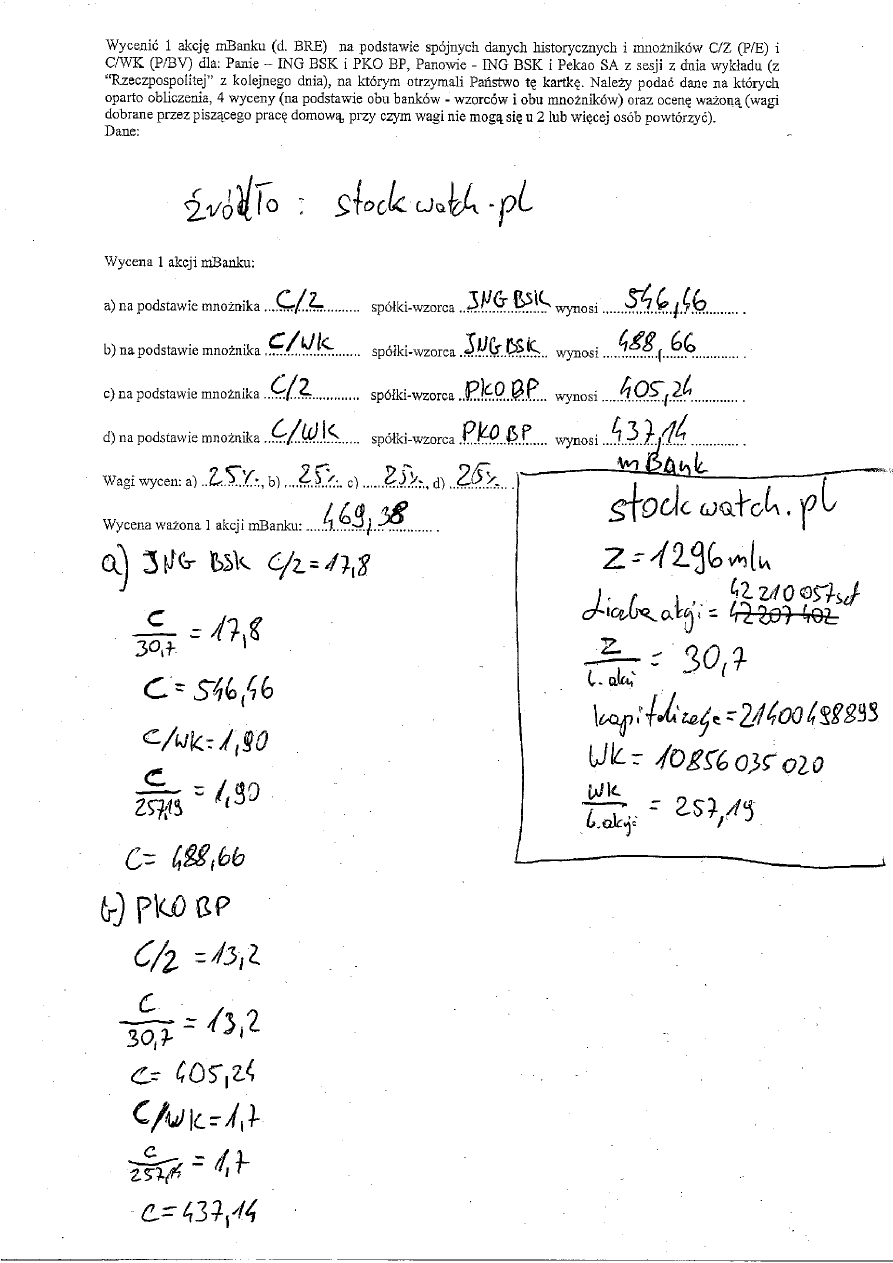 Wycenić 1 akcję mBanku (d. BRE) na podstawie spójnych danych historycznych i mnożników C/Z (P/E) i
C/WK (P/BV) dla: Panie – ING BSK i PKO BP, Panowie - ING BSK i Pekao SA z sesji z dnia wykładu (z
“Rzeczpospolitej” z kolejnego dnia), na którym otrzymali Państwo tę kartkę. Należy podać dane na których
oparto obliczenia, 4 wyceny (na podstawie obu banków - wzorców i obu mnożników) oraz ocenę ważoną (wagi
dobrane przez piszącego pracę domową, przy czym wagi nie mogą się u 2 lub więcej osób powtórzyć).
Dane:
źródło : stockwatch.pl
Wycena 1 akcji mBanku:
a) na podstawie mnożnika C/Z spółki-wzorca ING BSK wynosi 546,46
b) na podstawie mnożnika C/WK spółki-wzorca ING BSK wynosi 488,66
c) na podstawie mnożnika C/Z spółki-wzorca PKO BP wynosi 405,24
d) na podstawie mnożnika C/WK spółki-wzorca PKO BP wynosi 437,14
Wagi wycen: a) 25%, b) 25%, c) 25%, d) 25%
Wycena ważona 1 akcji mBanku: 469,38
a) ING BSK C/Z = 17,8
C/30,7 = 17,8
C = 546,46
C/WK = 1,90
C/257,19 = 1,90
C = 488,66
b) PKO BP
C/Z = 13,2
C/30,7 = 13,2
C = 405,24
C/WK = 1,7
C/257,14 = 1,7
C = 437,14
mBank
stockwatch.pl
Z = 1296 mln
42 210 057 szt
Liczba akcji = 42 207 402
Z/l. akcji = 30,7
kapitalizacje = 21400498899
WK = 10856 035 020
WK/l. akcji = 257,19